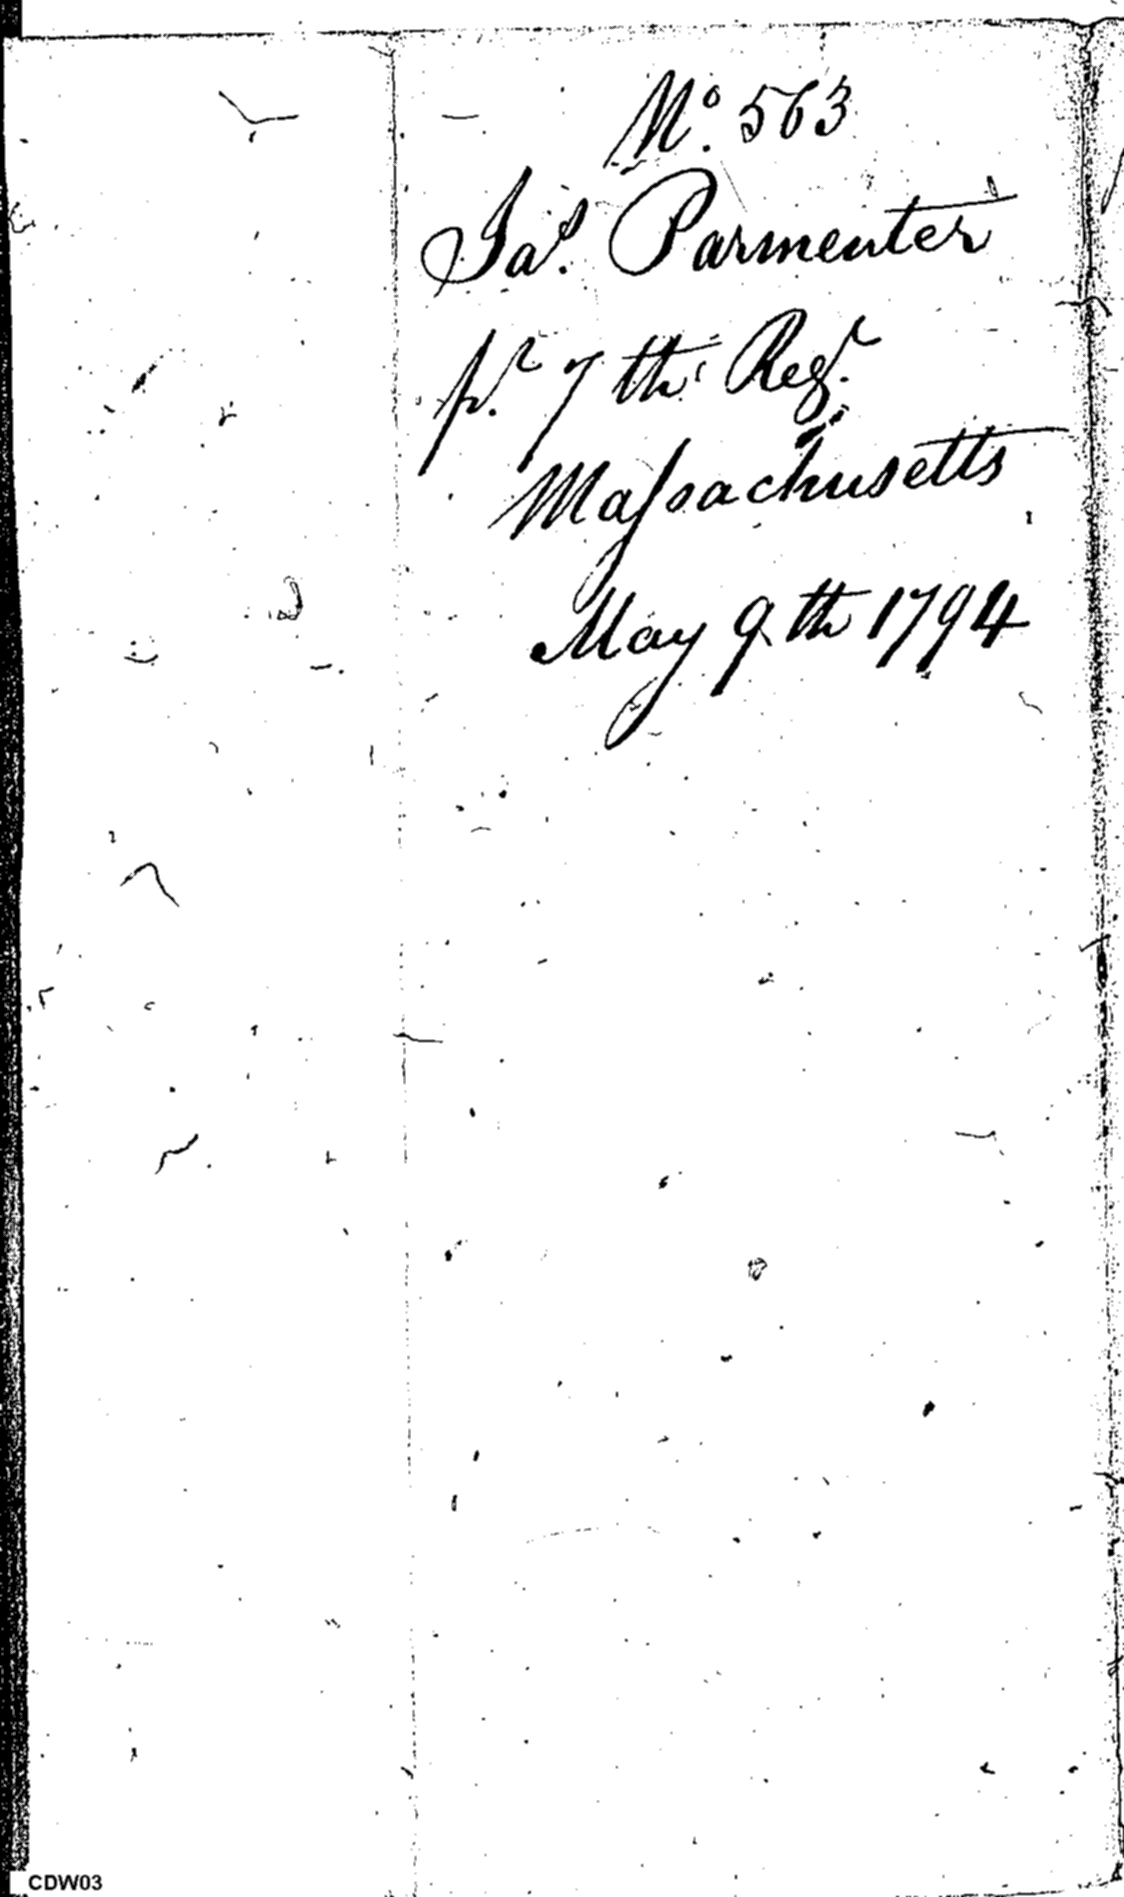 No. 563
Jas. Parmenter
pr. 7th Regt.
Massachusetts
May 9th 1794
CDW03